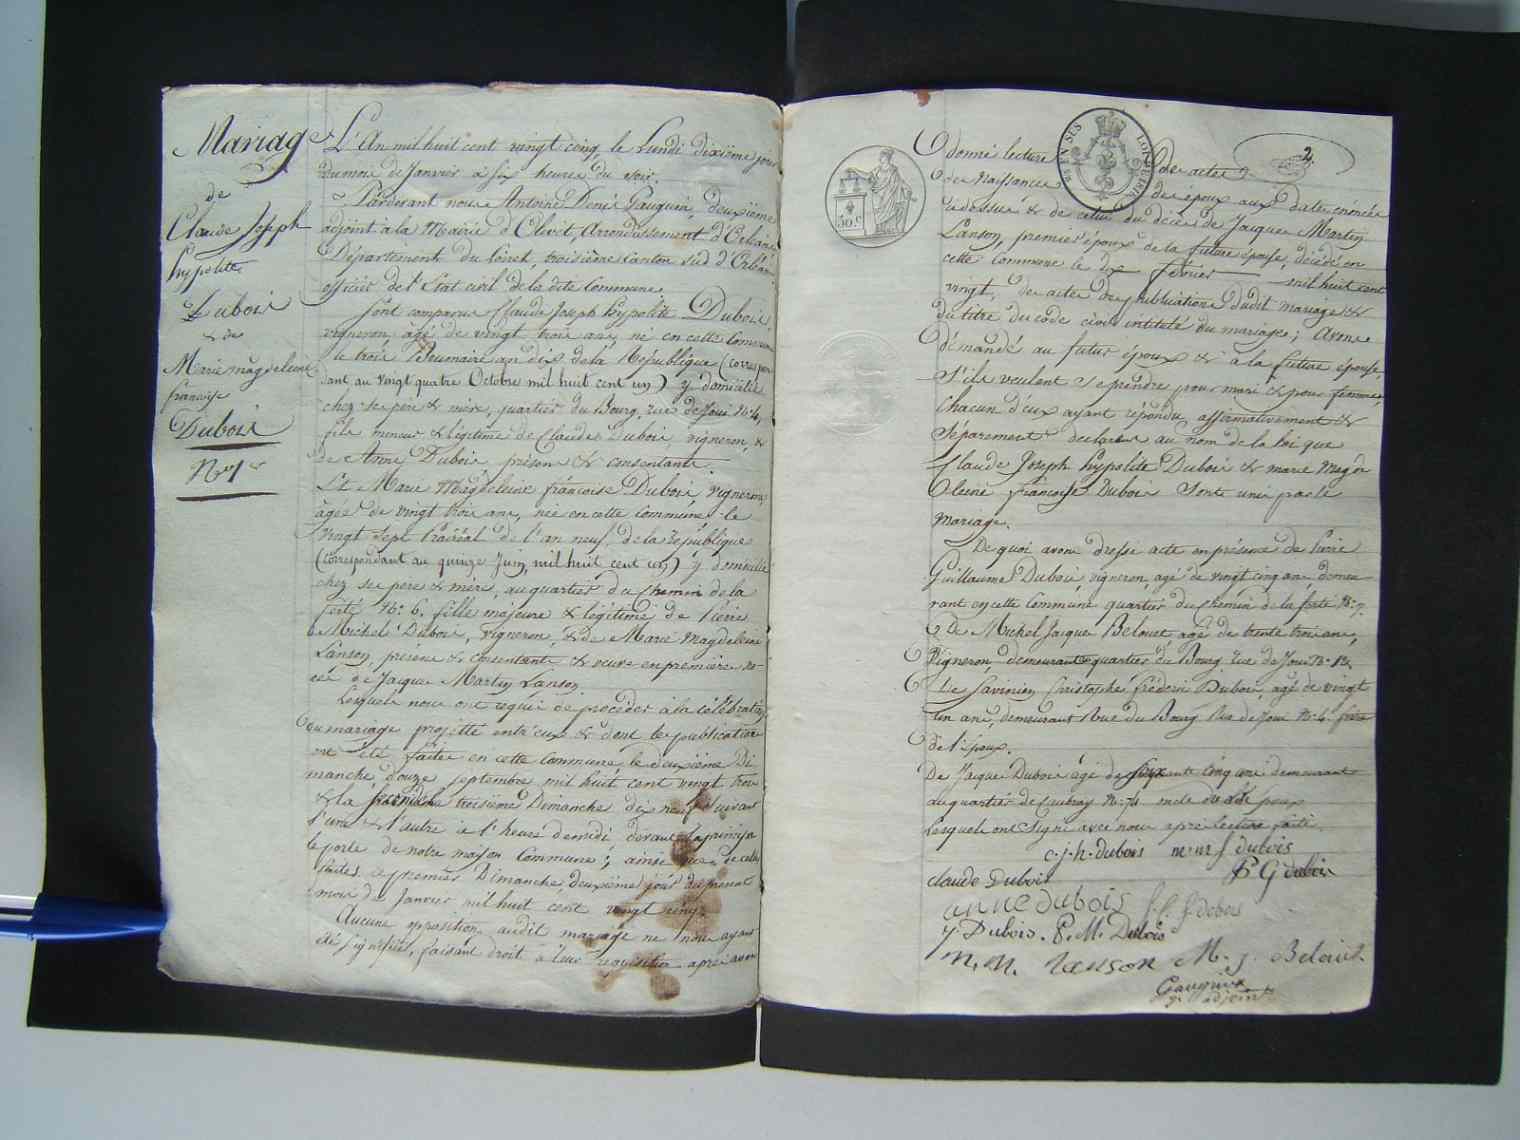 Mariage
de
Claude Joseph
hypolite
Dubois
& de
Marie magdeleine
francoise
Dubois
N° 1er
L'An mil huit cent vingt cinq, le Lundi dixième jour
du mois de Janvier à six heures du soir.
Pardevant nous Antoine Denis Gauguin, deuxième
adjoint à la Mairie d'Olivet, Arrondissement d'Orléans
Département du Loiret, troisième Canton sud d'Orléans
officier de l'Etat civil de la dite Commune
Sont comparus Claude Joseph hypolite Dubois
vigneron, âgé de vingt trois ans, né en cette Commune
le trois Brumaire an dix de la République (correspon
dant au vingt quatre Octobre mil huit cent un) y domicilié
chez ses pere & mère, quartier du Bourg, rue de Joui N° 4,
fils mineur & légitime de Claude Dubois vigneron, &
de Anne Dubois présens & consentants.
Et Marie Magdeleine françoise Dubois vigneronne,
âgée de vingt trois ans, née en cette Commune le
vingt sept Prairéal de l'an neuf de la république
(correspondant au quinze Juin, mil huit cent un) y domiciliée
chez ses pere & mère, au quartier du Chemin de la
ferté N° 6. fille majeure & légitime de Pierre
Michel Dubois, vigneron, & de Marie Magdeleine
Lanson, présens & consentants & veuve en première no-
ces de Jacques Martin Lanson
Lesquels nous ont requis de procéder à la célébration
du mariage projetté entr'eux & dont les publications
ont été faites en cette Commune le deuxième Di
manche douze septembre mil huit cent vingt trois
& la troisième Dimanche dix neuf suivant
l'une & l'autre à l'heure de midi, devant la principa
le porte de notre maison Commune; ainsi que de celles
faites ce premier Dimanche deuxième jour du présent
mois de Janvier mil huit cent vingt cinq.
Aucune opposition audit mariage ne nous ayant
été signifiée, faisant droit à leur réquisition après avoir
2.
30.c
donné lecture des actes
de Naissances des époux aux dates énoncées
cidessus & de celui du décès de Jacques Martin
Lanson, premier époux de la future épouse, décédé en
cette Commune le dix février mil huit cent
vingt, des actes de publications dudit mariage &
du titre du code civil intitulé du mariage; Avons
démandé au futur époux & à la future épouse,
S'ils veulent se prendre pour mari & pour femme;
Chacun d'eux ayant répondu affirmativement &
séparément declarons au nom de la loi que
Claude Joseph hypolite Dubois & marie Magde
leine françoise Dubois Sont unis par le
mariage.
De quoi avons dressé acte en présence de Pierre
Guillaume Dubois vigneron, agé de vingt cinq ans demeu
rant en cette Commune quartier du Chemin de la ferté N° 7.
De Michel Jacques Belouet agé de trente trois ans,
vigneron, demeurant quartier du Bourg rue de Joui N° 12
De Savinien Christophe fréderic Dubois, agé de vingt
un ans, demeurant Rue du Bourg Rue de Joui N° 4. frère
de l'époux.
De Jacques Dubois agé de soixante cinq ans demeurant
au quartier de Caubray N° 74 oncle de l'époux
Lesquels ont signé avec nous après lecture faite.
c. j. h. dubois m m f dubois
claude Dubois P G dubois
anne dubois S. C. F. dubois
J Dubois. P. M. Dubois
M. M. Lanson M. J. Belouet
Gauguin
adjoint